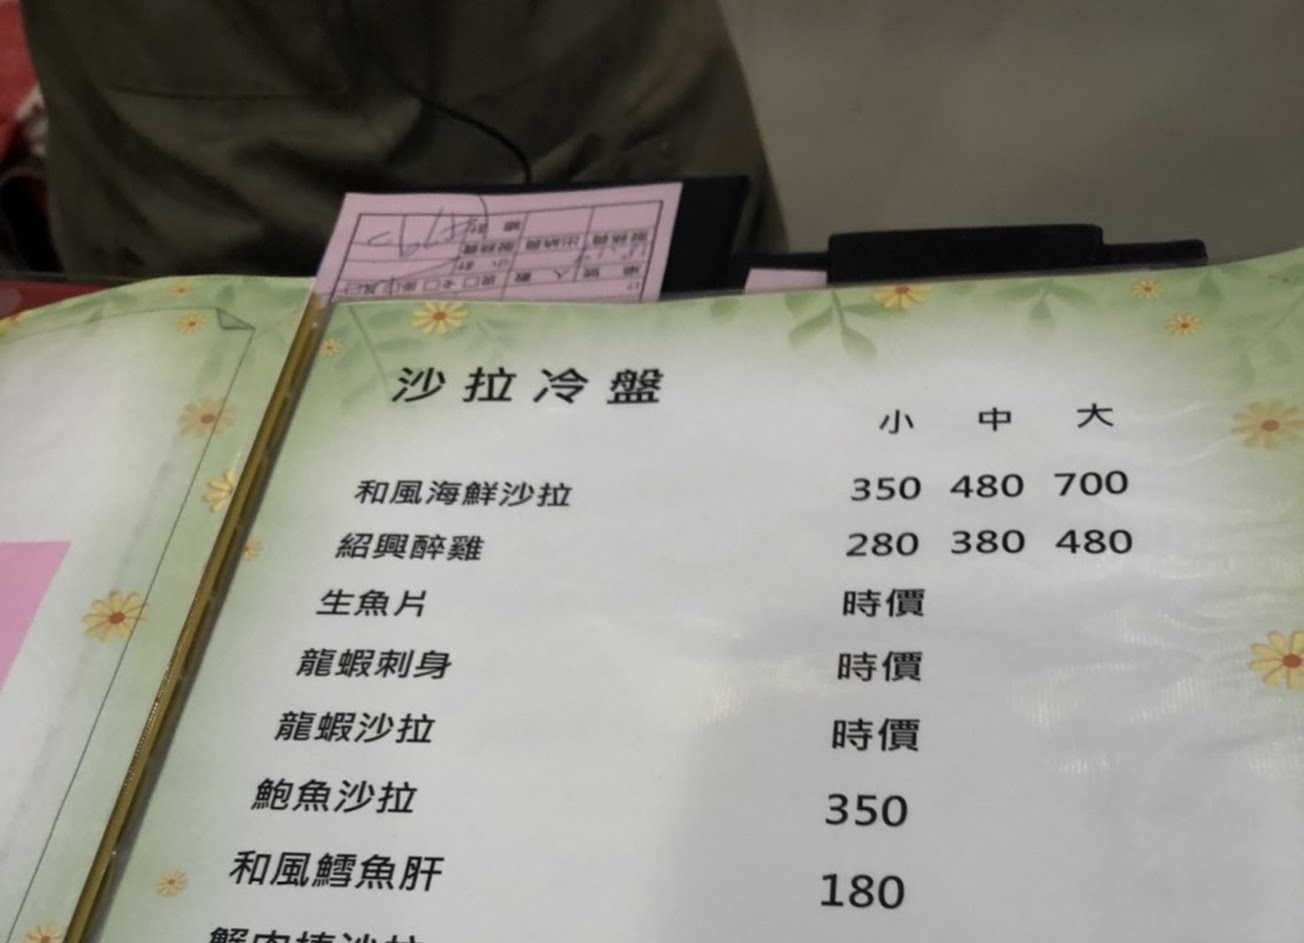 沙拉冷盤
小 中 大
和風海鮮沙拉 350 480 700
紹興醉雞 280 380 480
生魚片 時價
龍蝦刺身 時價
龍蝦沙拉 時價
鮑魚沙拉 350
和風鱈魚肝 180
蟹肉棒沙拉